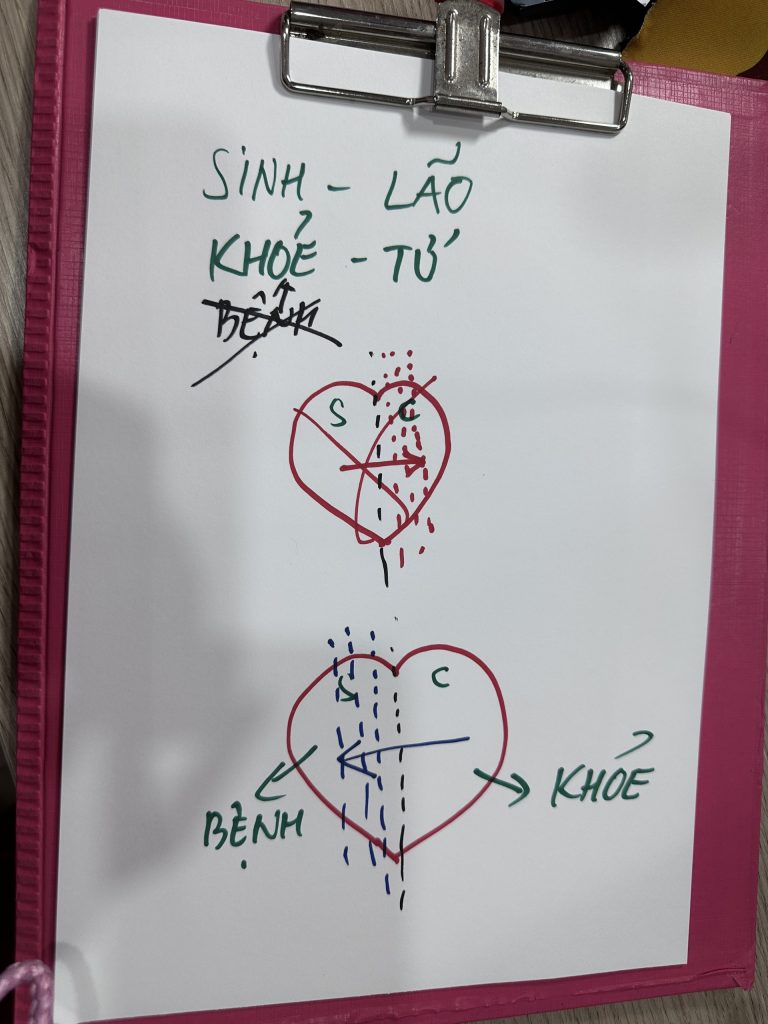 SINH - LÃO
KHOẺ - TỬ
BỆNH
S C
S C
BỆNH
KHOẺ